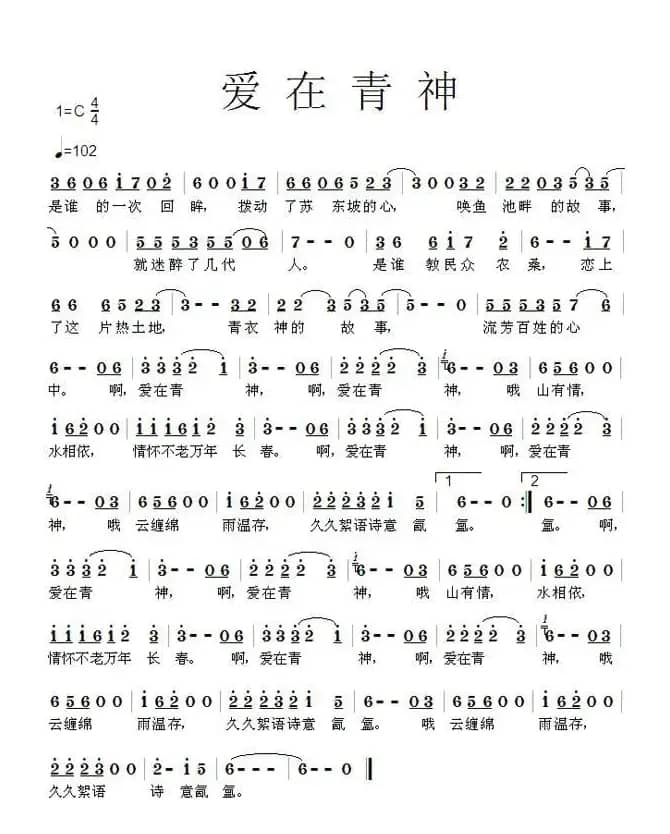 爱在青神
1=C 4/4
♩=102
3606 i702 | 600i7 | 6606523 | 30032 | 220535 |
是谁 的一次 回 眸, 拨动 了苏 东坡的心, 唤鱼 池畔 的故 事,
5000 | 55535506 | 7--0 | 36 6i7 2 | 0 i7 |
就迷醉了几代 人。 是谁 教民众 农 桑, 恋上
66 6523 | 3--32 | 22 0353 | 5--0 | 5553576 |
了这 片热土地, 青衣 神的 故 事, 流芳百姓的心
6--06 | 33322i | 3--06 | 222223 | 6--03 | 65600 |
中。 啊, 爱在青 神, 啊, 爱在青 神, 哦 山有情,
i6200 | iii6i2 3 | 3--06 | 33322i | 3--06 | 222223 |
水相依, 情怀不老万年 长 春。 啊, 爱在青 神, 啊, 爱在青
6--03 | 65600 | i6200 | 22223 2i 5 | 1 6--0 :| 2 6--06 |
神, 哦 云缠绵 雨温存, 久久絮语诗意 氤 氲。 氲。 啊,
33322i | 3--06 | 222223 | 6--03 | 65600 | i6200 |
爱在青 神, 啊, 爱在青 神, 哦 山有情, 水相依,
iii6i2 3 | 3--06 | 33322i | 3--06 | 222223 | 6--03 |
情怀不老万年 长 春。 啊, 爱在青 神, 啊, 爱在青 神, 哦
65600 | i6200 | 222232i 5 | 6--03 | 65600 | i6200 |
云缠绵 雨温存, 久久絮语诗意 氤 氲。 哦 云缠绵 雨温存,
222300 | 2-i5 | 6--- | 6--0 ‖
久久絮语 诗 意氤 氲。